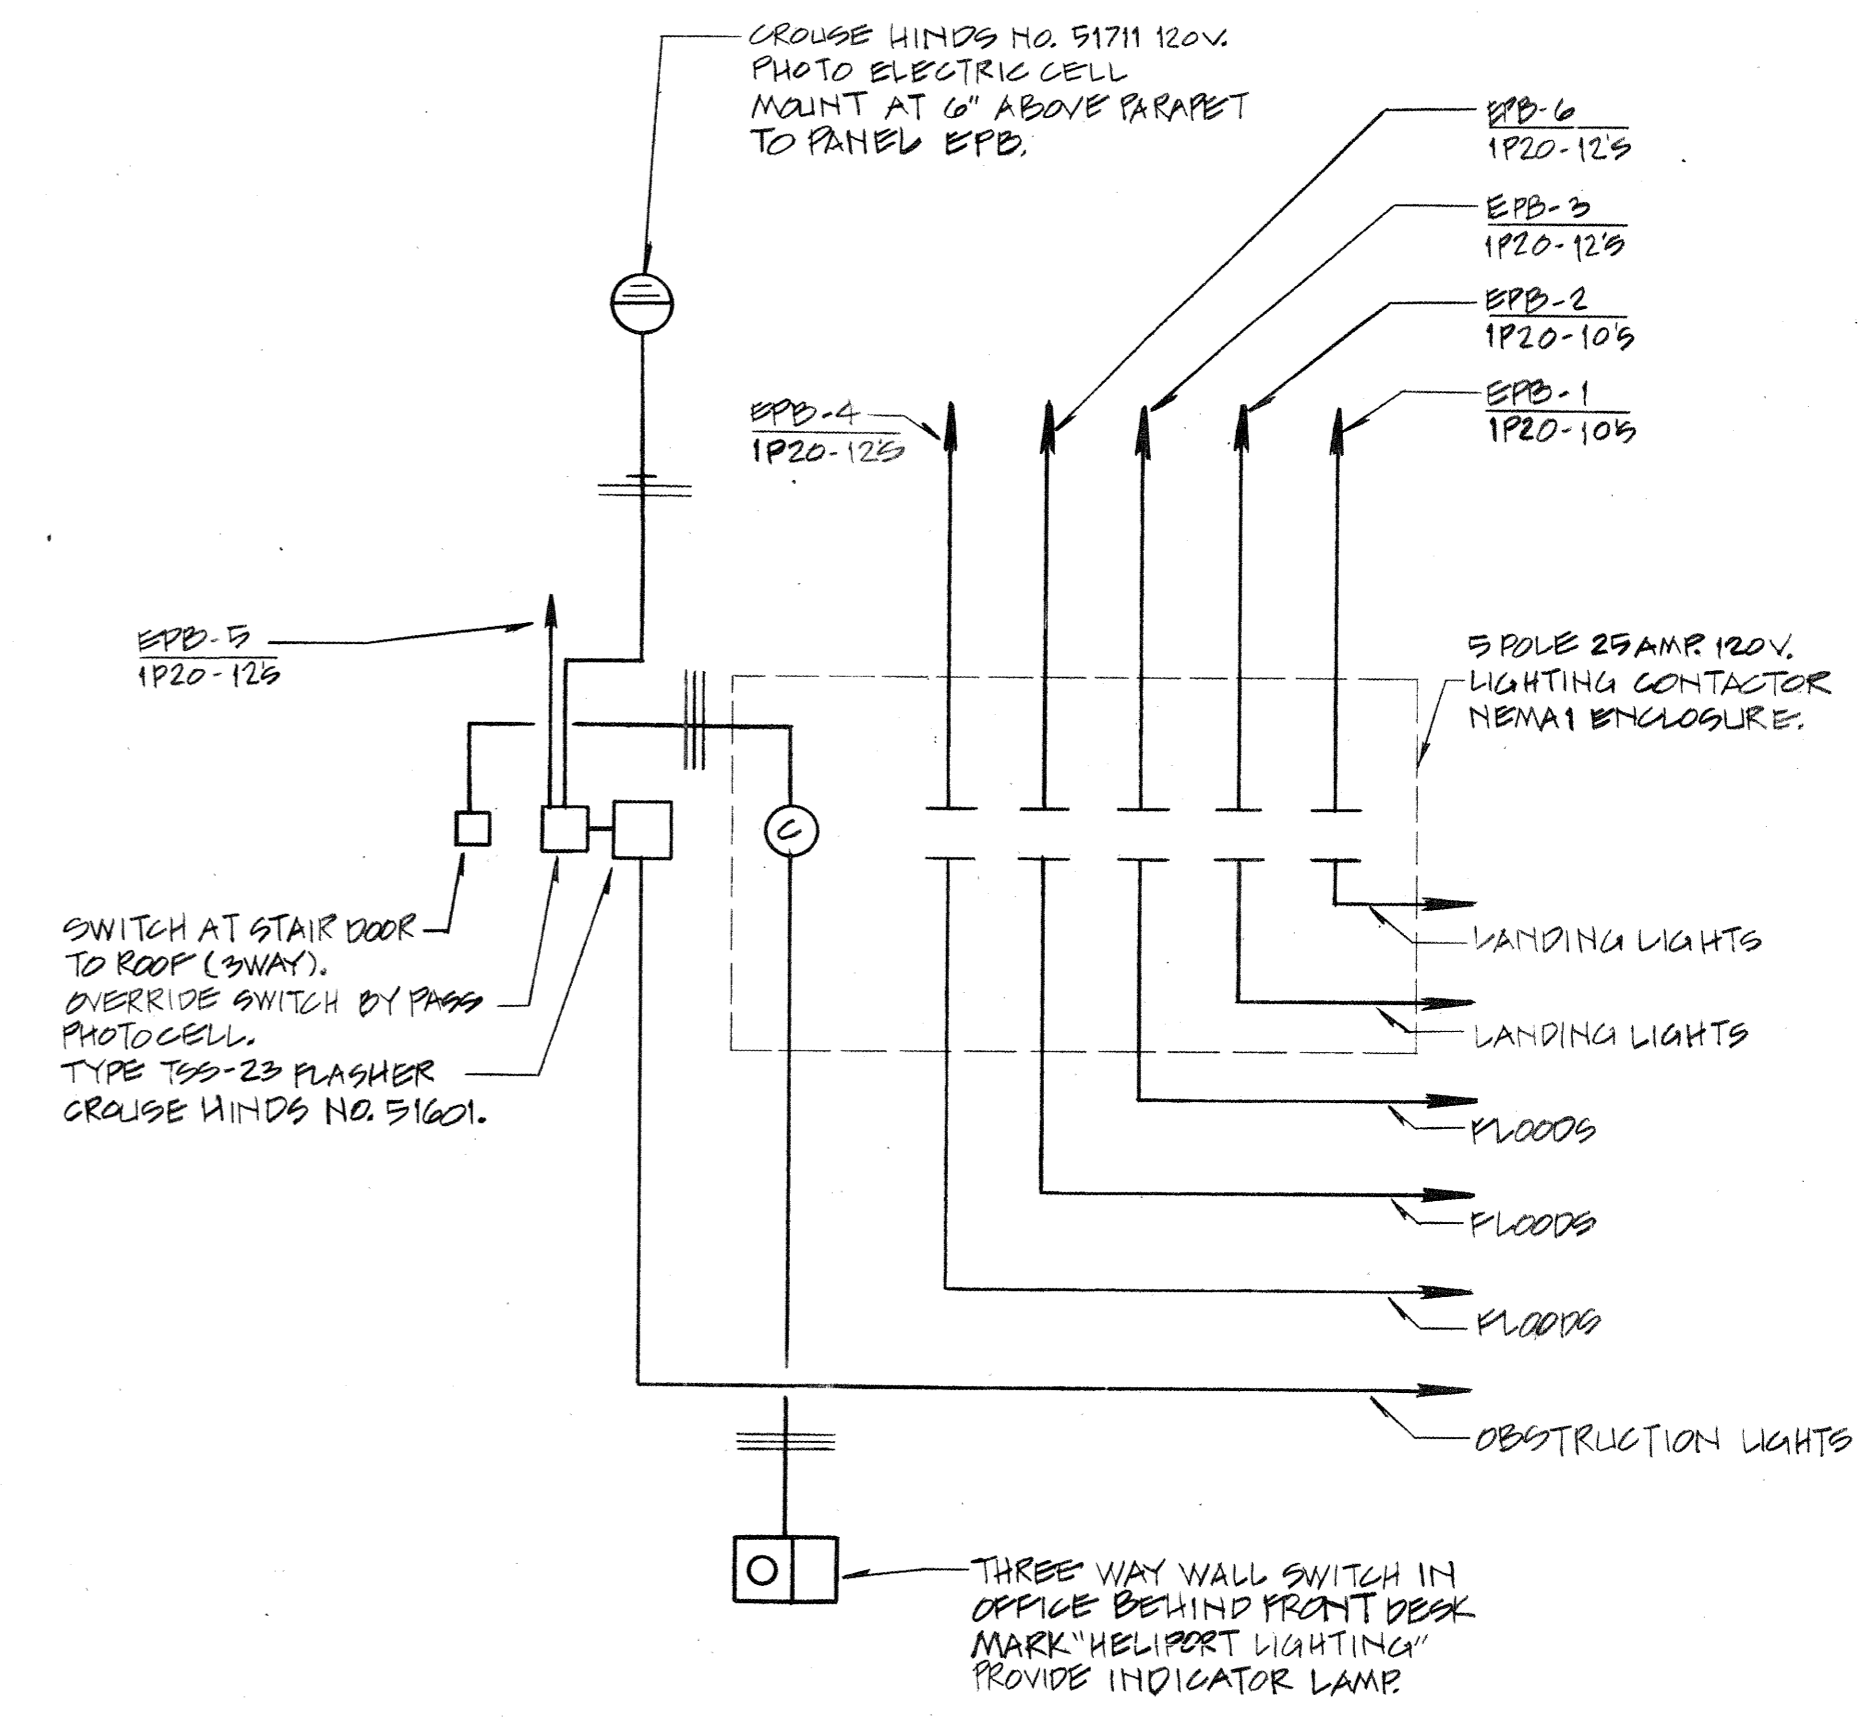 CROUSE HINDS NO. 51711 120V.
PHOTO ELECTRIC CELL
MOUNT AT 6" ABOVE PARAPET
TO PANEL EPB.
EPB-6
1P20-12'S
EPB-3
1P20-12'S
EPB-2
1P20-10'S
EPB-1
1P20-10'S
EPB-4
1P20-12'S
EPB-5
1P20-12'S
5 POLE 25 AMP. 120V.
LIGHTING CONTACTOR
NEMA 1 ENCLOSURE.
C
SWITCH AT STAIR DOOR
TO ROOF (3WAY).
OVERRIDE SWITCH BY PASS
PHOTOCELL.
TYPE TSS-23 FLASHER
CROUSE HINDS NO. 51601.
LANDING LIGHTS
LANDING LIGHTS
FLOODS
FLOODS
FLOODS
OBSTRUCTION LIGHTS
THREE WAY WALL SWITCH IN
OFFICE BEHIND FRONT DESK
MARK "HELIPORT LIGHTING"
PROVIDE INDICATOR LAMP.